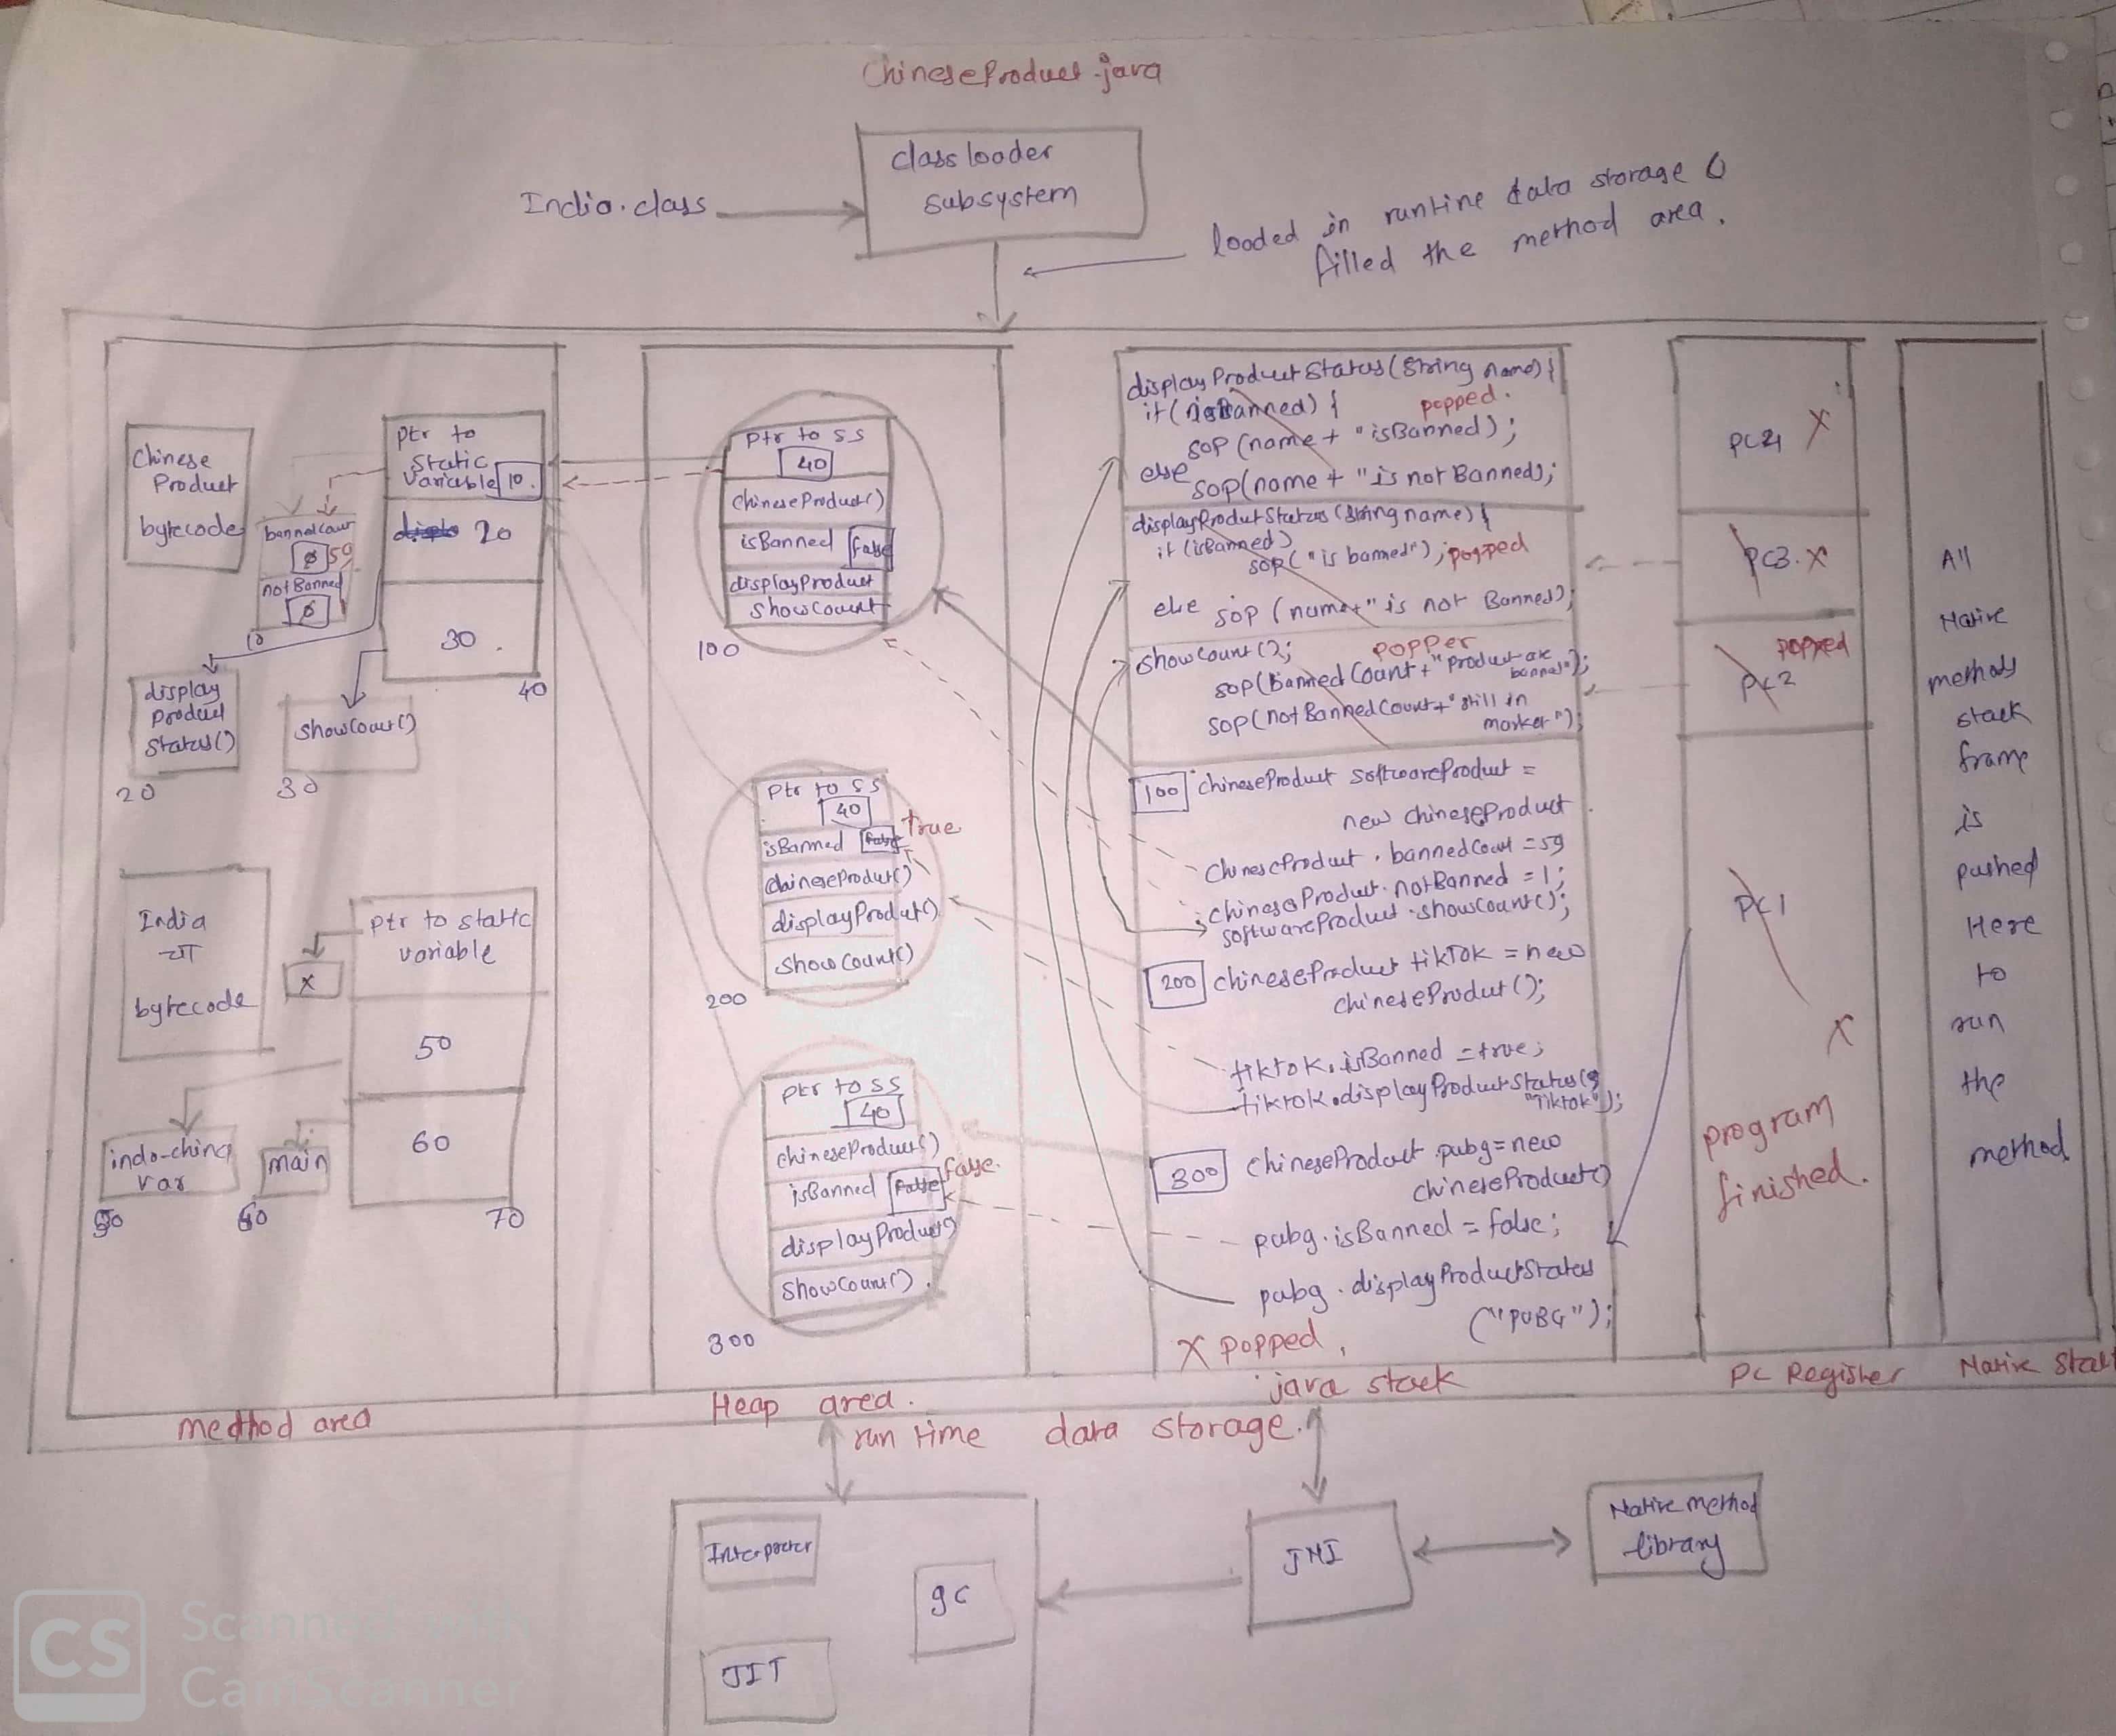 ChineseProduct.java
class loader
subsystem
India.class
loaded in runtime data storage &
filled the method area.
Chinese
Product
bytecode
ptr to
static
variable 10.
20
30
40
59
notBanned
10
display
product
status()
20
showCount()
30
India
चा
bytecode
ptr to static
variable
X
50
60
70
indo-china
var
50
main
60
method area
ptr to ss
40
chineseProduct()
isBanned false
displayProduct
showCount
100
ptr to ss
40
isBanned false true
chineseProduct()
displayProduct()
showCount()
200
ptr to ss
40
chineseProduct()
isBanned false false.
displayProduct()
showCount()
300
Heap area.
displayProductStatus(String name) {
if (isBanned) { popped.
sop (name + "isBanned);
else
sop(name + "is not Banned);
displayProdutStatus (String name) {
if (isBanned)
sop ("is banned"); popped
else sop (name+" is not Banned);
showCount(); popper
sop(BannedCount + "product are banned");
sop(notBannedCount + "still in
market");
100 chineseProduct softwareProduct =
new chineseProduct
chineseProduct.bannedCount = 59
chineseProduct.notBanned = 1;
softwareProduct.showcount();
200 chineseProduct tikTok = new
chineseProdut();
tiktok.isBanned = true;
tiktok.displayProductStatus(
"Tiktok");
300 chineseProduct pubg = new
chineseProduct()
pubg.isBanned = false;
pubg.displayProductStatus
("PUBG");
X popped,
java stack
PC4 X
PC3. X
popped
PC2
PC1
X
program
finished.
PC Register
All
Native
methods
stack
frame
is
pushed
Here
to
run
the
method
Native Stack
run time data storage.
Interpreter
gc
JIT
JNI
Native method
library
CS
Scanned with
CamScanner